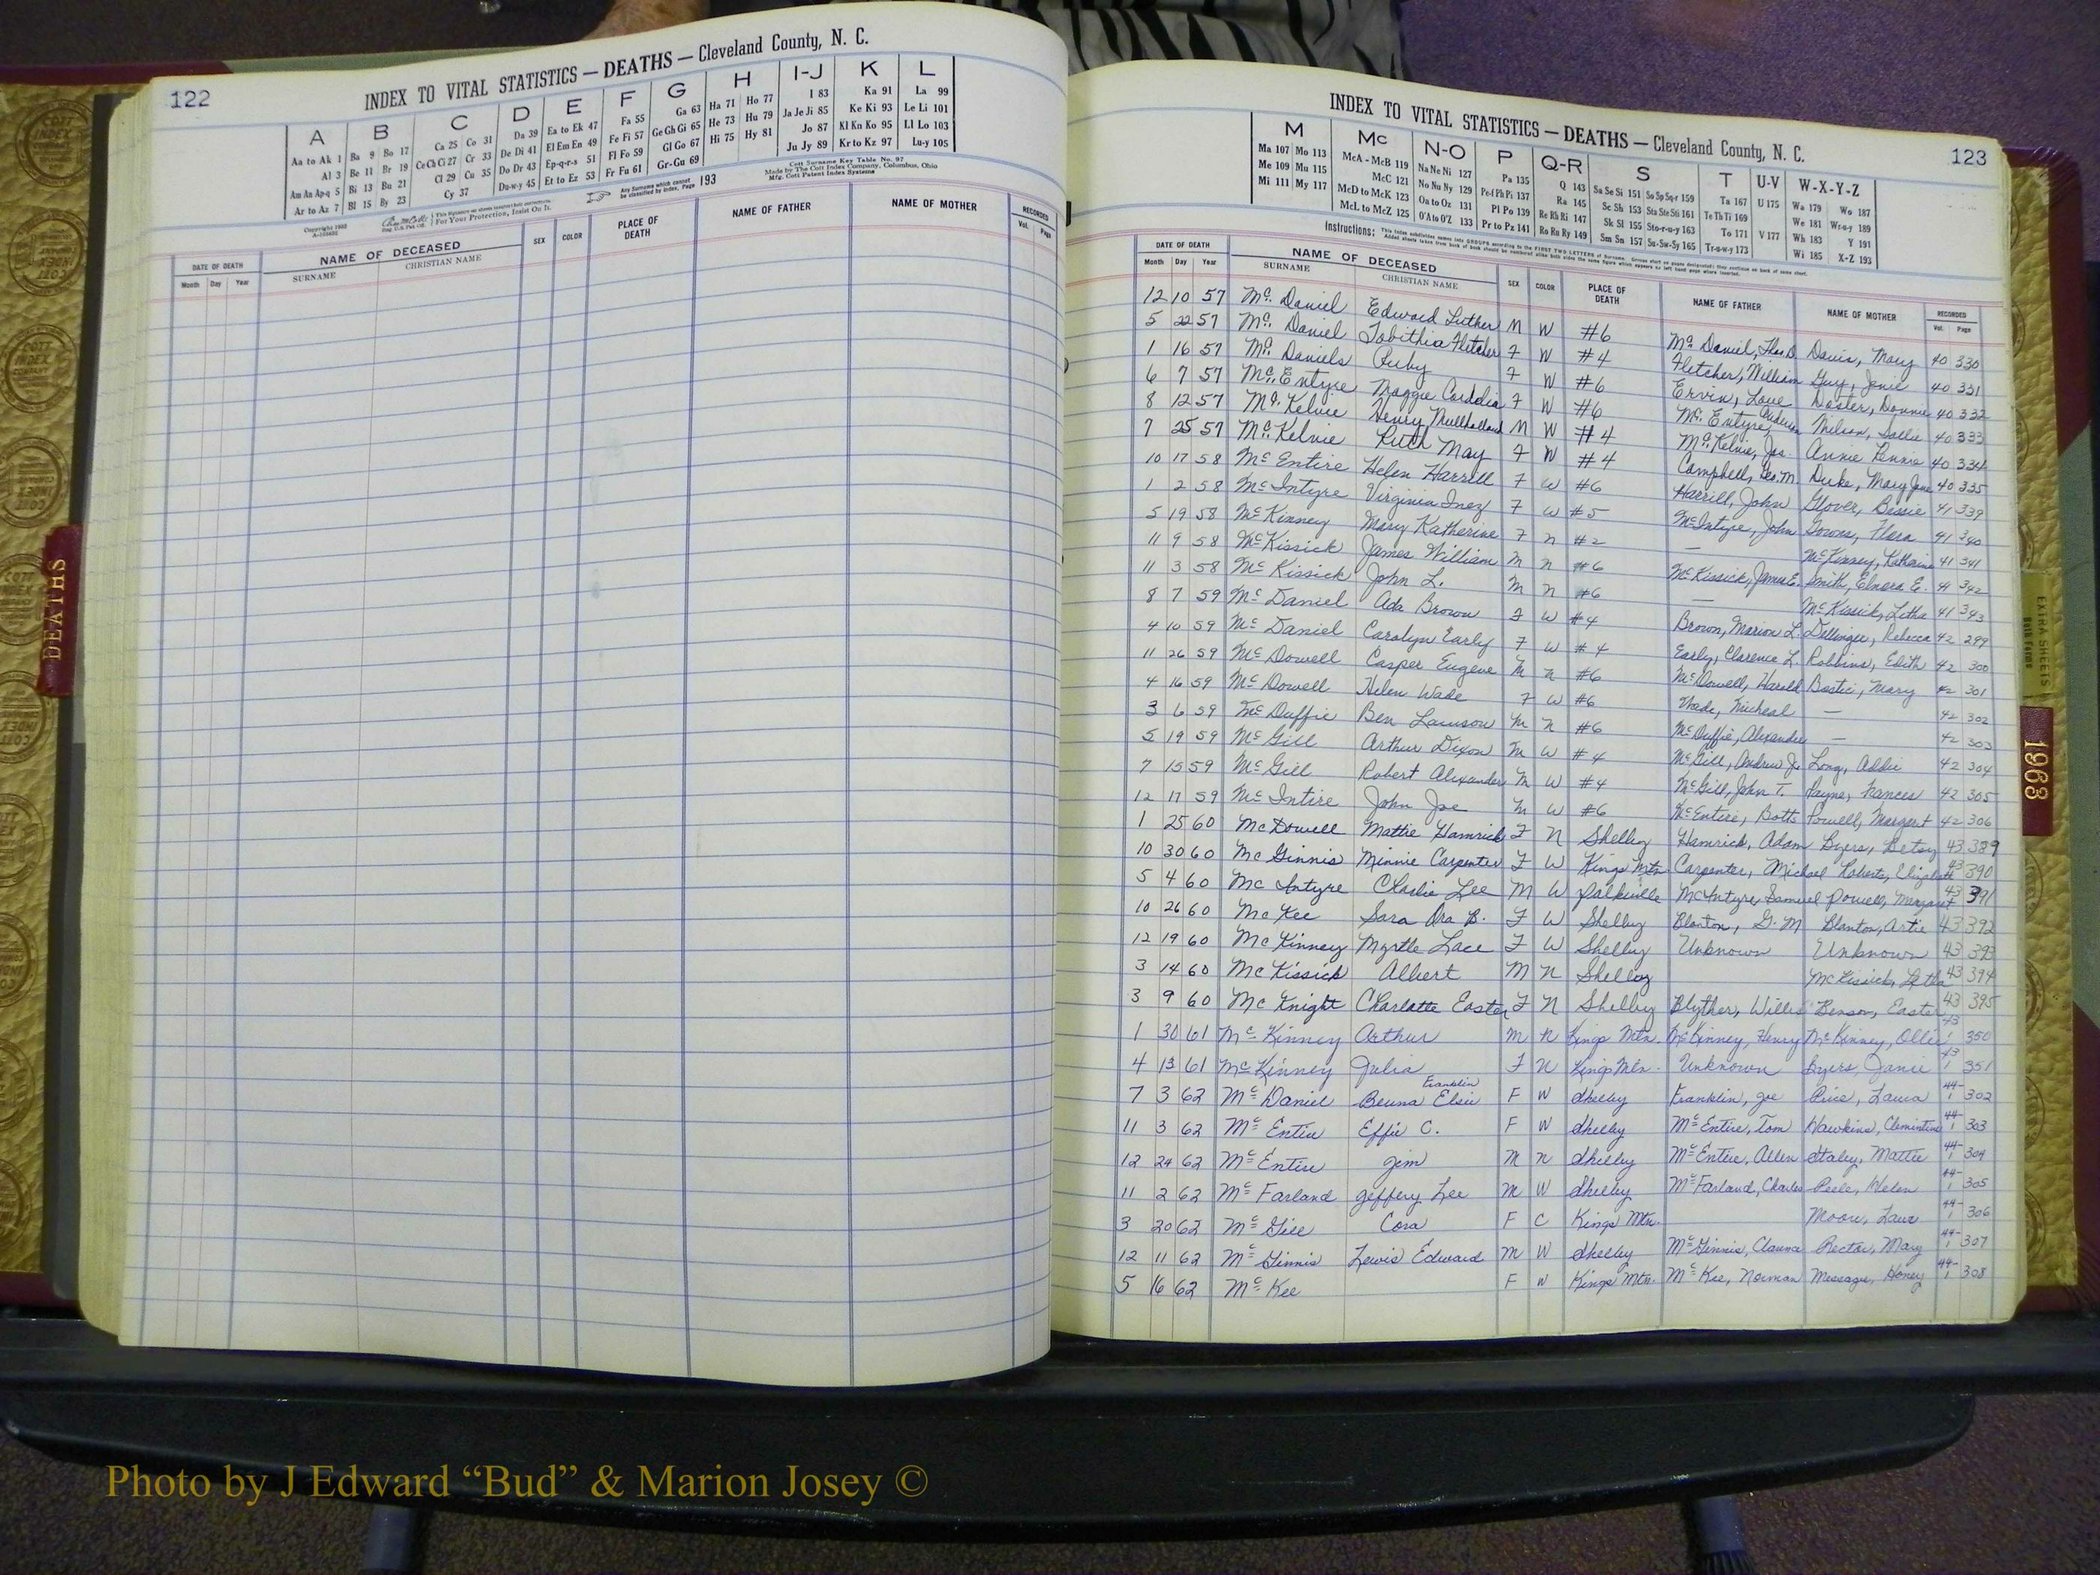 122
INDEX TO VITAL STATISTICS — DEATHS — Cleveland County, N. C.
A B C D E F G H I-J K L
Aa to Ak 1 Ba 9 Bo 17 Ca 25 Co 31 Da 39 Ea to Ek 47 Fa 55 Ga 63 Ha 71 Ho 77 I 83 Ka 91 La 99
Al 3 Be 11 Br 19 Ce Ch Ci 27 Cr 33 De Di 41 El Em En 49 Fe Fi 57 Ge Gh Gi 65 He 73 Hu 79 Ja Je Ji 85 Ke Ki 93 Le Li 101
Am An Ap-q 5 Bi 13 Bu 21 Cl 29 Cu 35 Do Dr 43 Ep-q-r-s 51 Fl Fo 59 Gl Go 67 Hi 75 Hy 81 Jo 87 Kl Kn Ko 95 Ll Lo 103
Ar to Az 7 Bl 15 By 23 Cy 37 Du-w-y 45 Et to Ez 53 Fr Fu 61 Gr-Gu 69 Ju Jy 89 Kr to Kz 97 Lu-y 105
Any Surname which cannot be classified by index, Page 193
Cott Surname Key Table No. 97
Made by The Cott Index Company, Columbus, Ohio
Mfg. Cott Patent Index Systems
For Your Protection, Insist On It.
DATE OF DEATH NAME OF DECEASED SEX COLOR PLACE OF DEATH NAME OF FATHER NAME OF MOTHER RECORDED
Month Day Year SURNAME CHRISTIAN NAME Vol. Page
123
INDEX TO VITAL STATISTICS — DEATHS — Cleveland County, N. C.
M Mc N-O P Q-R S T U-V W-X-Y-Z
Ma 107 Mo 113 McA - McB 119 Na Ne Ni 127 Pa 135 Q 143 Sa Se Si 151 So Sp Sq-r 159 Ta 167 U 175 Wa 179 Wo 187
Me 109 Mu 115 McC 121 No Nu Ny 129 Pe-f Ph Pi 137 Ra 145 Sc Sh 153 Sta Ste Sti 161 Te Th Ti 169 We 181 Wr-u-y 189
Mi 111 My 117 McD to McK 123 Oa to Oz 131 Pl Po 139 Re Rh Ri 147 Sk Sl 155 Sto-r-u-y 163 To 171 V 177 Wh 183 Y 191
McL to McZ 125 O'A to O'Z 133 Pr to Pz 141 Ro Ru Ry 149 Sm Sn 157 Su-Sw-Sy 165 Tr-u-w-y 173 Wi 185 X-Z 193
Instructions:
DATE OF DEATH NAME OF DECEASED SEX COLOR PLACE OF DEATH NAME OF FATHER NAME OF MOTHER RECORDED
Month Day Year SURNAME CHRISTIAN NAME Vol. Page
12 10 57 Mc Daniel Edward Luther M W #6 Mc Daniel, Davis, Mary 40 330
5 22 57 Mc Daniel Tabithia Fletcher F W #4 Fletcher, William Guy, Jane 40 331
1 16 57 Mc Daniels Ruby F W #6 Ervin, Love Dorsey, Donnie 40 332
6 7 57 Mc Entyre Maggie Cordelia F W #6 Mc Entyre, Wilson, 40 333
8 12 57 Mc Kelvie Henry Mullholland M W #4 Mc Kelvie, Jas. Annie Rennie 40 334
7 25 57 Mc Kelvie Ruth May F W #4 Campbell, Geo. M. Duke, Mary Jane 40 335
10 17 58 Mc Entire Helen Harrill F W #6 Harrill, John Glover, Bessie 41 339
1 2 58 Mc Intyre Virginia Inez F W #5 McIntyre, John Flora 41 340
5 19 58 Mc Kinney Mary Katherine F N #2 — McKinney, Katherine 41 341
11 9 58 McKissick James William M N #6 McKissick, James E. Smith, Elnora E. 41 342
11 3 58 Mc Kissick John L. M N #6 — McKissick, Letha 41 343
8 7 59 Mc Daniel Ada Brown F W #4 Brown, Marion L. Dellinger, Rebecca 42 299
4 10 59 Mc Daniel Carolyn Early F W #4 Early, Clarence L. Robbins, Edith 42 300
11 26 59 Mc Dowell Casper Eugene M N #6 McDowell, Harold Bostic, Mary 42 301
4 16 59 Mc Dowell Helen Wade F W #6 Wade, Micheal — 42 302
3 6 59 Mc Duffie Ben Lawson M N #6 McDuffie, Alexander — 42 303
5 19 59 Mc Gill Arthur Dixon M W #4 McGill, Andrew J. Long, Addie 42 304
7 15 59 Mc Gill Robert Alexander M W #4 McGill, John T. Payne, Frances 42 305
12 17 59 Mc Intire John Joe M W #6 McEntire, Botts Powell, Margaret 42 306
1 25 60 McDowell Mattie Hamrick F N Shelby Hamrick, Adam Byers, Betsy 43 389
10 30 60 Mc Ginnis Minnie Carpenter F W Kings Mtn. Carpenter, Michael Roberts, Elizabeth 43 390
5 4 60 Mc Intyre Charlie Lee M W Polkville McIntyre Samuel Powell, Margaret 43 391
10 26 60 Mc Kee Sara Ora B. F W Shelby Blanton, G. M Blanton, Artie 43 392
12 19 60 Mc Kinney Myrtle Lace F W Shelby Unknown Unknown 43 393
3 14 60 Mc Kissick Albert M N Shelby McKissick, Letha 43 394
3 9 60 Mc Knight Charlotte Easter F N Shelby Blyther, Willis Benson, Easter 43 395
1 30 61 Mc Kinney Arthur M N Kings Mtn. McKinney, Henry McKinney, Ollie 43 1 350
4 13 61 Mc Kinney Julia F N Kings Mtn. Unknown Byers, Janie 43 1 351
7 3 62 Mc Daniel Beuna Elsie Franklin F W Shelby Franklin, Joe Price, Laura 44-1 302
11 3 62 Mc Entire Effie C. F W Shelby Mc Entire, Tom Hawkins, Clementine 44-1 303
12 24 62 Mc Entire Jim M N Shelby Mc Entire, Allen Staley, Mattie 44-1 304
11 2 62 Mc Farland Jeffery Lee M W Shelby Mc Farland, Charles Peele, Helen 44-1 305
3 20 62 Mc Gill Cora F C Kings Mtn. Moore, Laur 44-1 306
12 11 62 Mc Ginnis Lewis Edward M W Shelby Mc Ginnis, Clarence Rector, Mary 44-1 307
5 16 62 Mc Kee F W Kings Mtn. Mc Kee, Norman Message, Honey 44-1 308
DEATHS
1963
EXTRA SHEETS
Photo by J Edward “Bud” & Marion Josey ©